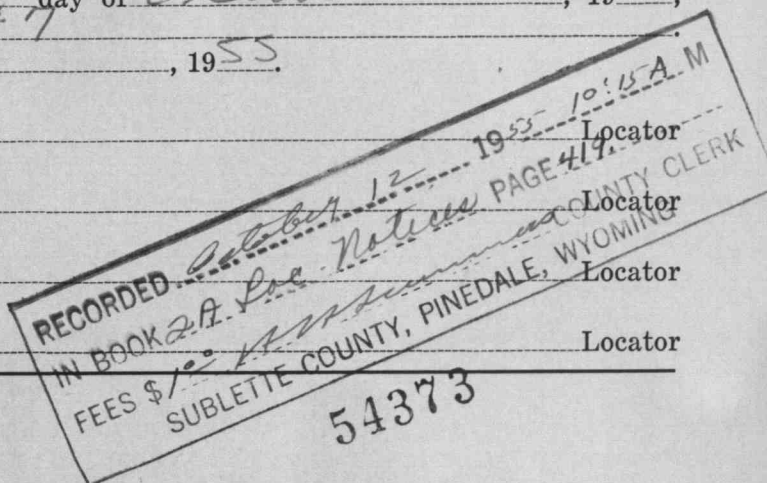 7 day of , 19 ,
, 19 55.
Locator
Locator
Locator
Locator
RECORDED October 12 1955 10:15 A M
IN BOOK 2A Loc. Notices PAGE 419.
FEES $1.00 COUNTY CLERK
SUBLETTE COUNTY, PINEDALE, WYOMING
54373